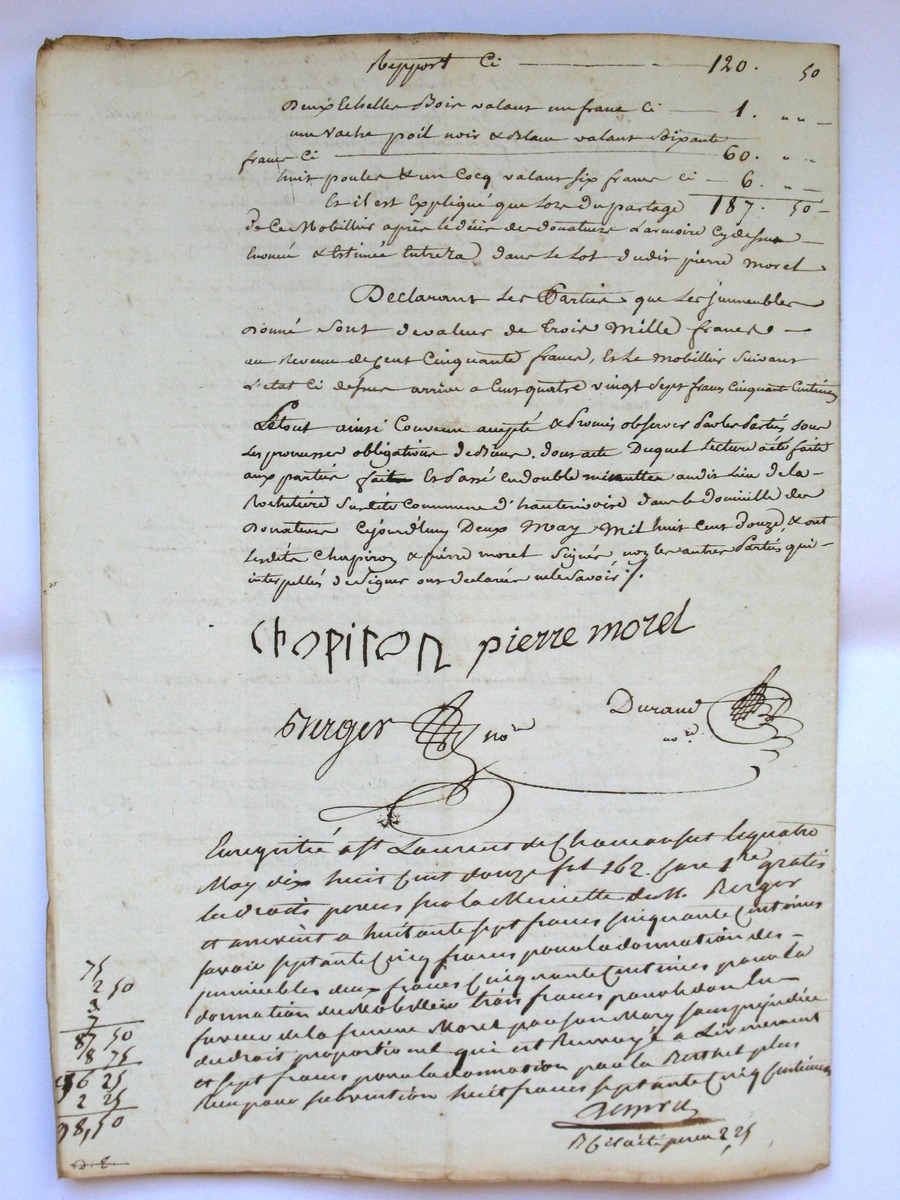 Report Ci — 120. 50
Deux Echelles Bois valant un franc Ci — 1. „ „ —
une vache poil noir & Blanc valant Soixante
francs Ci — 60. „ „
huit poules & un Cocq valant six francs Ci — 6. „ „
Et il est Expliqué que Lors du partage 187. 50 —
de Ce Mobillier après le décès des donateurs L'armoire Cy dessus —
Enoncé & Estimée Entrera dans le Lot dudit pierre morel
Declarant Les Parties que Les jmmeubles
Donné Sont de valeur de trois Mille francs —
au Revenu de Cent Cinquante francs, Et Le mobillier suivant
L'état Ci dessus arrive a Cent quatre vingt Sept francs Cinquante Centimes
Le tout ainsi Convenu accepté & Promis observer Par les Parties sous
Les promesses obligations de Biens. dont acte Duquel Lecture a été faite
aux parties fait Et Passé en double minuttes audit Lieu de la —
Rochetiere Susdite Commune d'hauterivoire dans le domicille des
Donateurs Cejourd'huy Deux May Mil huit Cent douze, & ont
Lesdits Chapiron & pierre morel Signés non les autres Parties qui —
interpellés de Signer ont declarés ne le Savoir ./.
Chopiron pierre morel
Berger nore
Durand
nore.
Enregistré a St Laurent de Chamousset le quatre
May dix huit Cent douze fol 162. Case 1re gratis
les droits perçus sur la Minutte de M. Berger
et arrivent a huitante sept francs cinquante Centimes
savoir septante Cinq francs pour la donnation des —
jmmeubles deux francs Cinquante Centimes pour la
donnation du Mobilier trois francs pour le don en
faveur de la femme Morel par son Mary sans prejudice
du droit proportionel qui est Renvoyé a L'Evenement
et sept francs pour la donnation par la Berthet plus
Reçu pour subvention huit francs septante Cinq Centimes
2,25
75
2 50
3
7
87 50
8 75
96 25
2 25
98,50